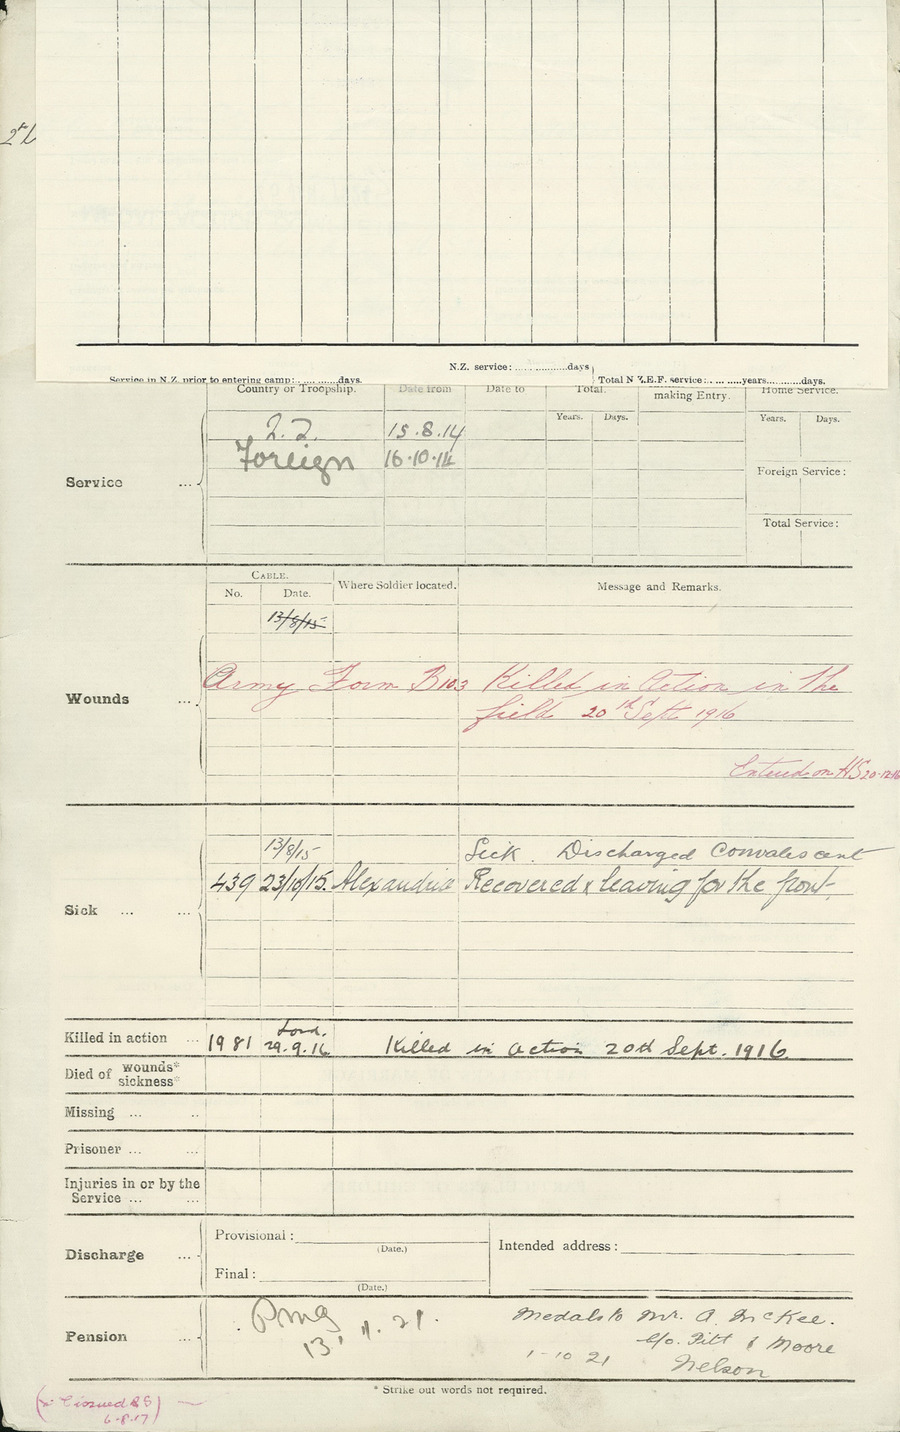 N.Z. service: ..... ............days
Service in N.Z. prior to entering camp: .. ... .......days. Total N.Z.E.F. service: .. ... .....years.........days.
Country or Troopship. Date from Date to Total. making Entry. Home Service.
Years. Days. Years. Days.
15.8.14
Foreign 16.10.14
Foreign Service:
Service ...
Total Service:
CABLE.
No. Date. Where Soldier located. Message and Remarks.
13/8/15
Army Form B103 Killed in Action in the
Wounds ...
field 20th Sept 1916
Entered on HS 20.12.16
13/8/15 Sick. Discharged Convalescent
439 23/10/15. Alexandria Recovered & leaving for the front.
Sick ... ...
Lond.
Killed in action ... 1981 29.9.16 Killed in action 20th Sept. 1916.
Died of wounds*
sickness*
Missing ... ..
Prisoner ... ...
Injuries in or by the
Service ... ...
Provisional: (Date.)
Discharge ... Intended address:
Final: (Date.)
Pension ... 13.11.21. Medals to Mr. A. McKee.
c/o. Pitt & Moore
1-10 21 Nelson
* Strike out words not required.
issued
6.8.17